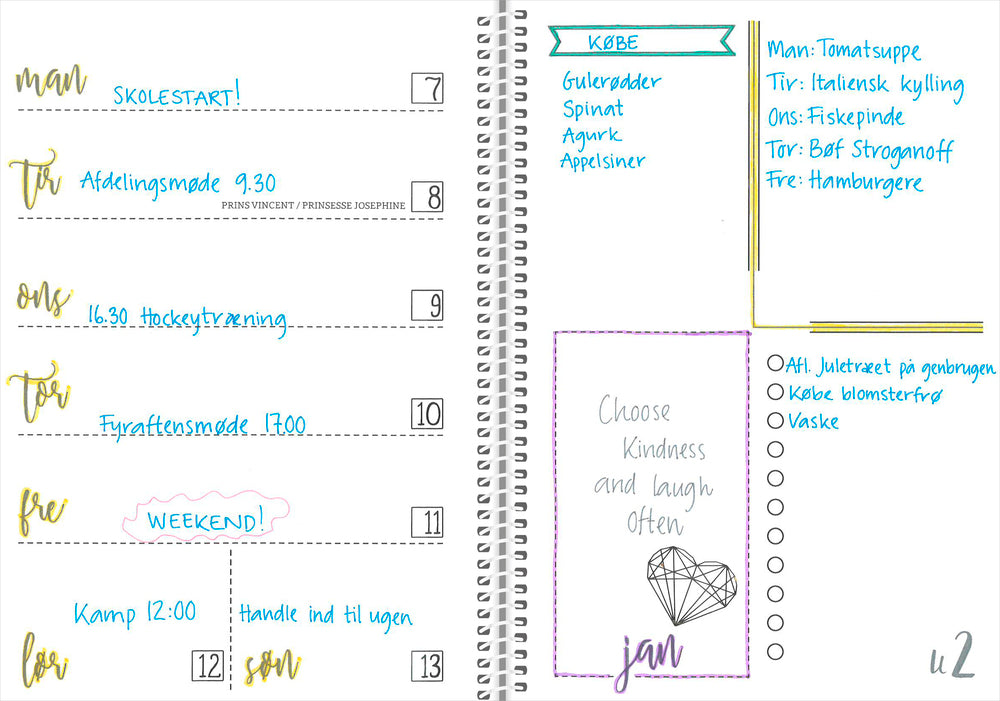 man
SKOLESTART!
7
tir
Afdelingsmøde 9.30
PRINS VINCENT / PRINSESSE JOSEPHINE
8
ons
16.30 Hockeytræning
9
tor
Fyraftensmøde 17.00
10
fre
WEEKEND!
11
Kamp 12:00
lør
12
Handle ind til ugen
søn
13
KØBE
Gulerødder
Spinat
Agurk
Appelsiner
Man: Tomatsuppe
Tir: Italiensk kylling
Ons: Fiskepinde
Tor: Bøf Stroganoff
Fre: Hamburgere
Choose
Kindness
and laugh
Often
jan
Afl. Juletræet på genbrugen
Købe blomsterfrø
Vaske
u2